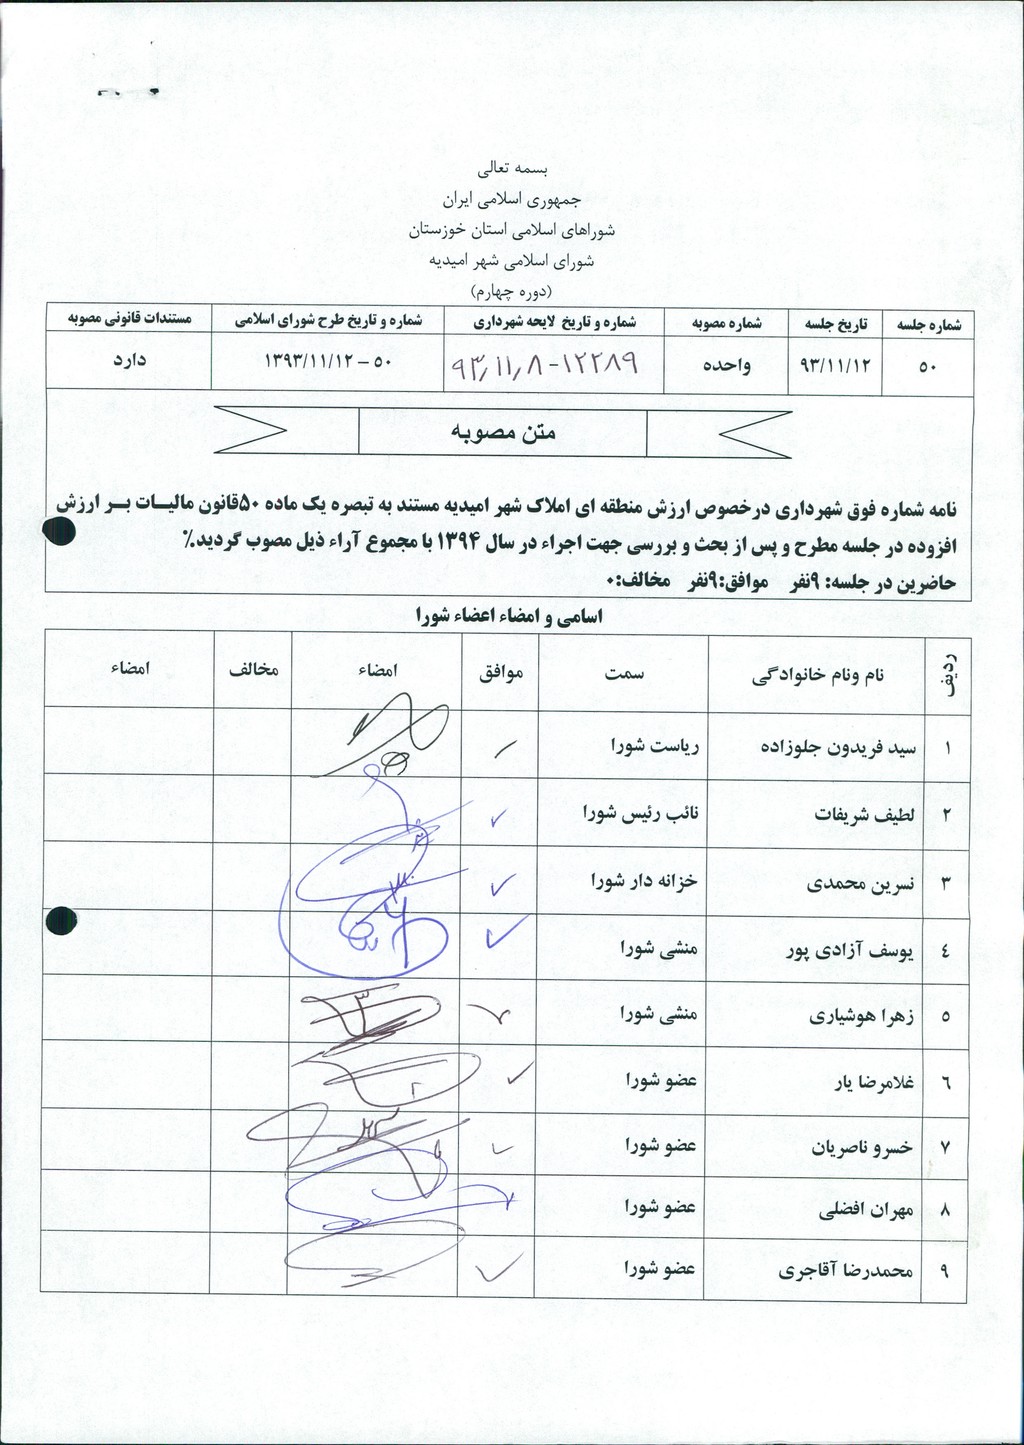 بسمه تعالی
جمهوری اسلامی ایران
شوراهای اسلامی استان خوزستان
شورای اسلامی شهر امیدیه
(دوره چهارم)
شماره جلسه تاریخ جلسه شماره مصوبه شماره و تاریخ لایحه شهرداری شماره و تاریخ طرح شورای اسلامی مستندات قانونی مصوبه
۵۰ ۹۳/۱۱/۱۲ واحده ۱۲۲۸۹-۹۳/۱۱/۸ ۵۰ – ۱۳۹۳/۱۱/۱۲ دارد
متن مصوبه
نامه شماره فوق شهرداری درخصوص ارزش منطقه ای املاک شهر امیدیه مستند به تبصره یک ماده ۵۰قانون مالیـات بـر ارزش
افزوده در جلسه مطرح و پس از بحث و بررسی جهت اجراء در سال ۱۳۹۴ با مجموع آراء ذیل مصوب گردید.٪
حاضرین در جلسه: ۹نفر موافق:۹نفر مخالف:۰
اسامی و امضاء اعضاء شورا
ردیف نام ونام خانوادگی سمت موافق امضاء مخالف امضاء
۱ سید فریدون جلوزاده ریاست شورا
۲ لطیف شریفات نائب رئیس شورا
۳ نسرین محمدی خزانه دار شورا
٤ یوسف آزادی پور منشی شورا
۵ زهرا هوشیاری منشی شورا
٦ غلامرضا یار عضو شورا
۷ خسرو ناصریان عضو شورا
۸ مهران افضلی عضو شورا
۹ محمدرضا آقاجری عضو شورا